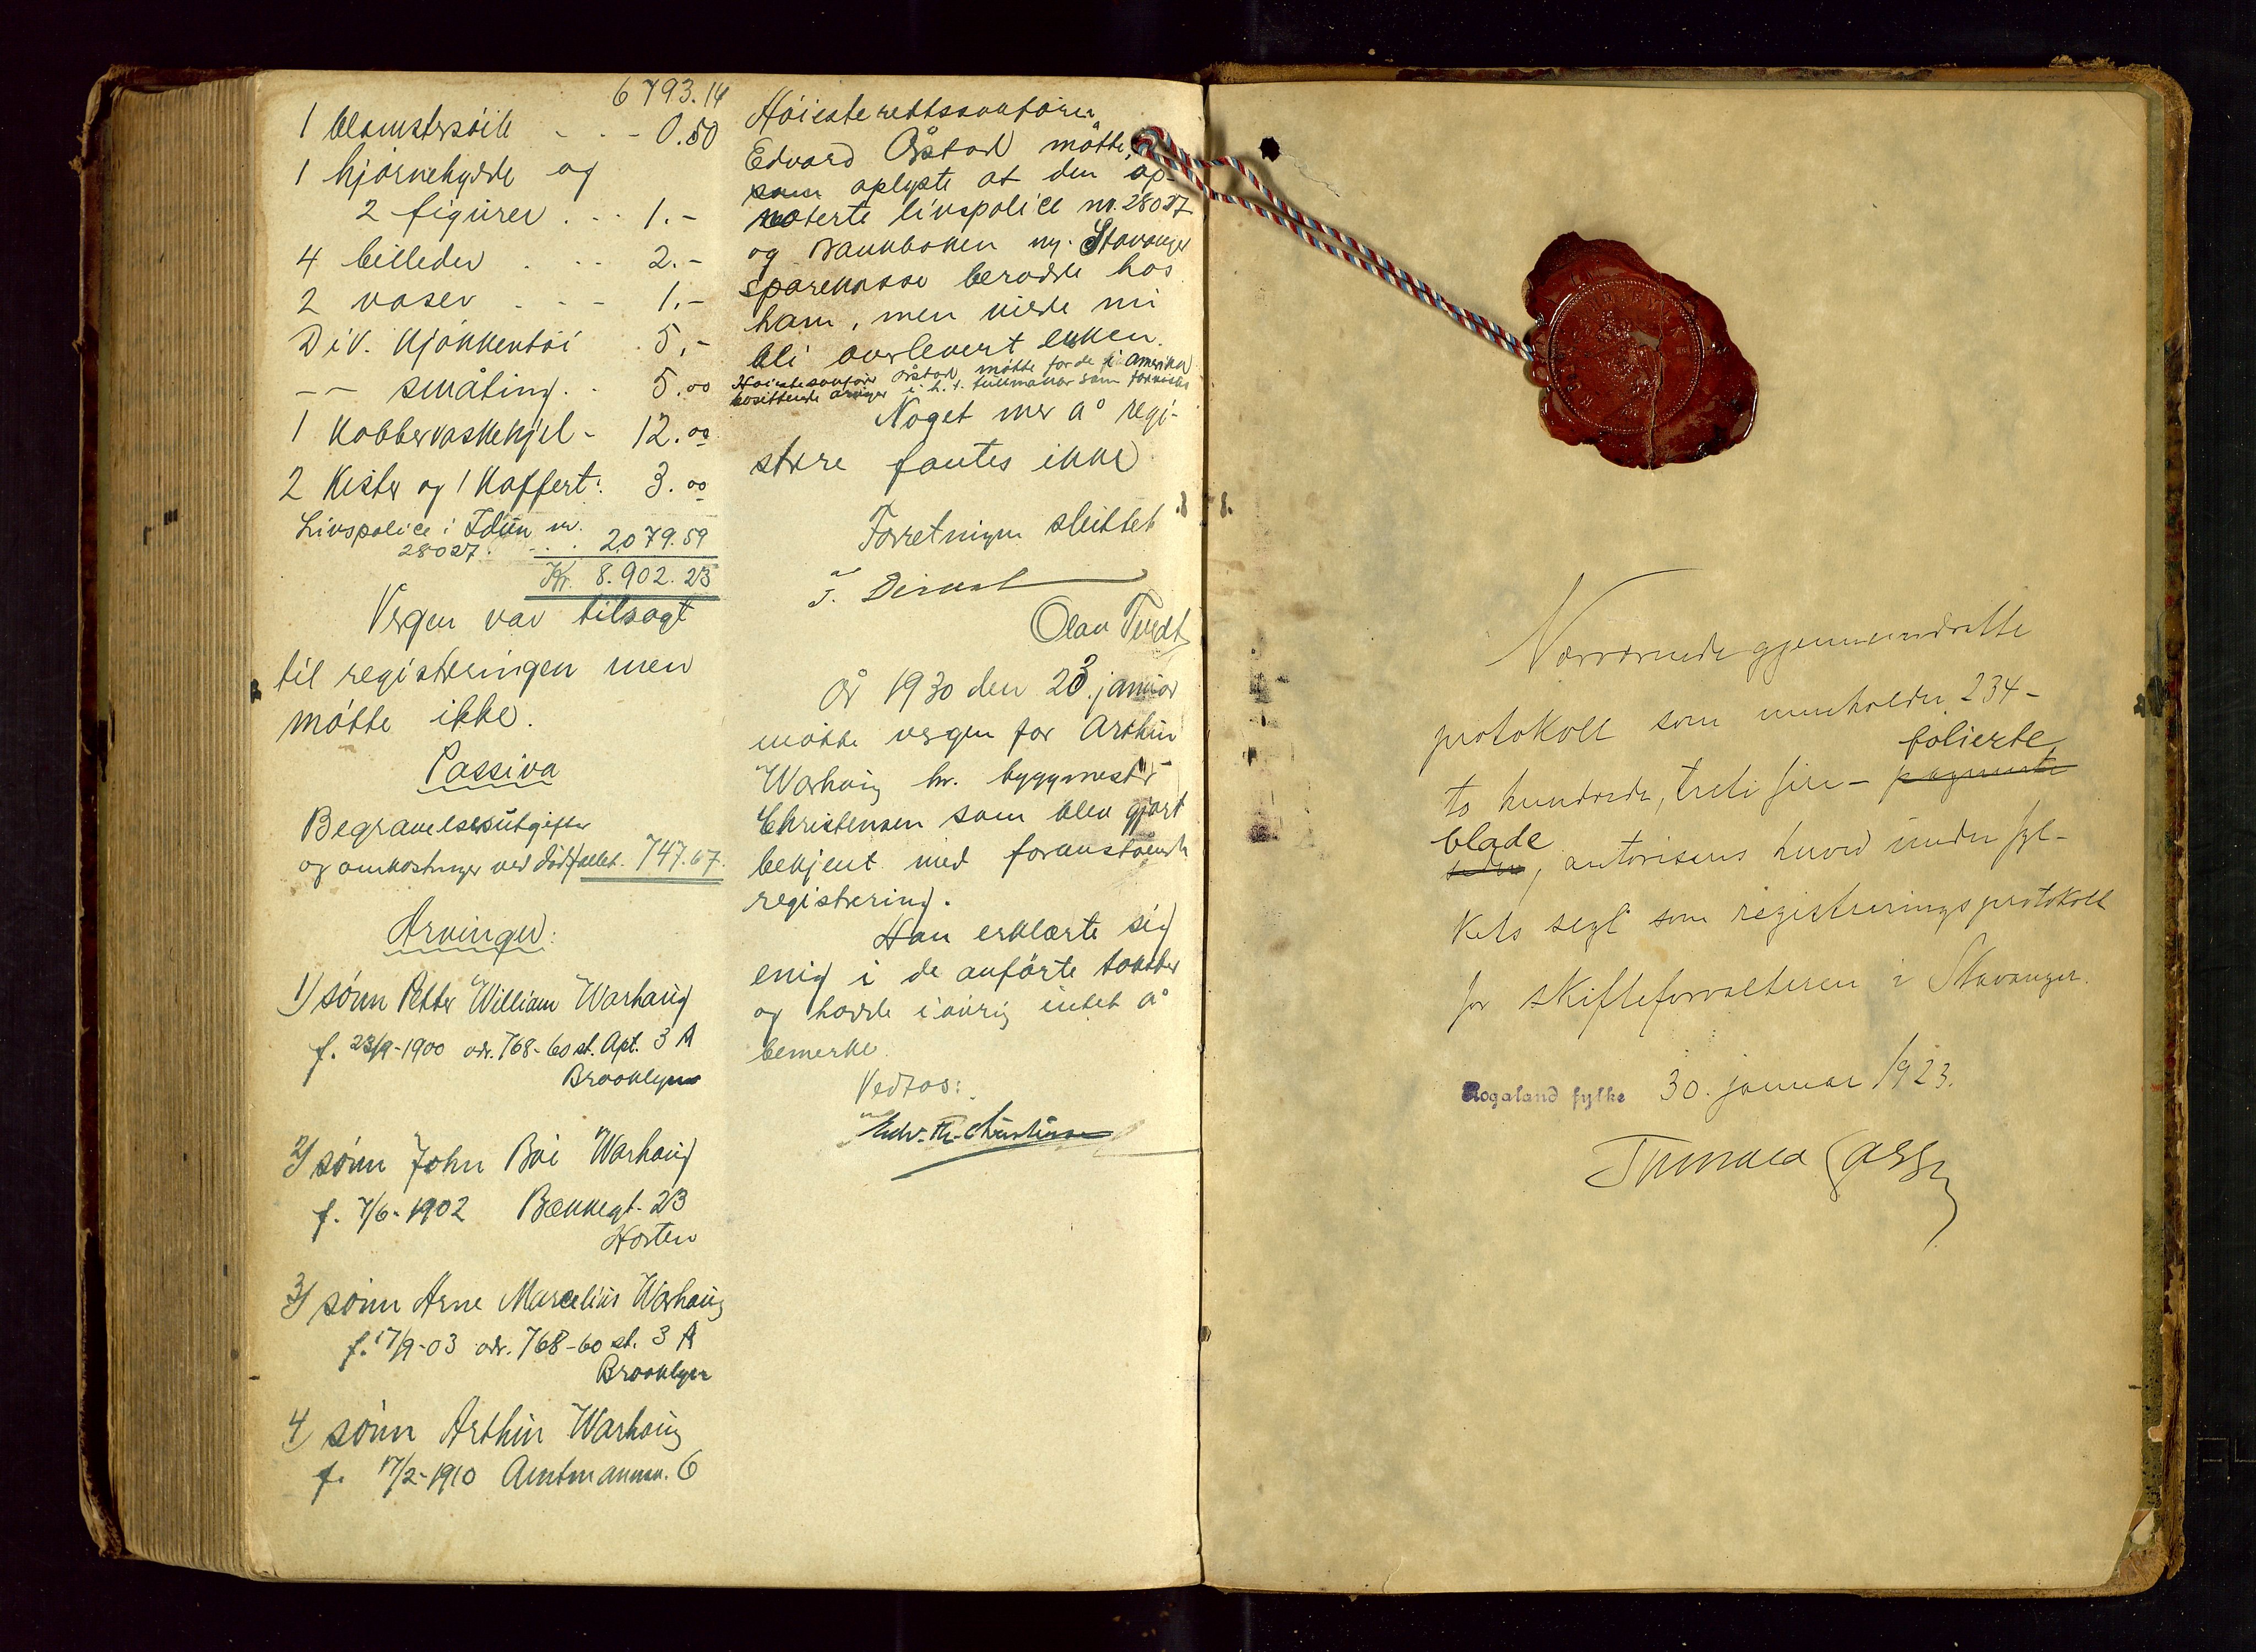 6793.14
1 blomstersøile - - - 0.50
1 hjørnehylde og
2 figurer . - . 1.-
4 billeder . . - . 2.-
2 vaser . - - 1.-
Div. kjøkkentøi . 5,-
-- småting. - 5.00
1 Kobbervaskekjel - 12.00
2 Kister og 1 Koffert. 3.00
Livspolice i Idun nr.
28027. - . . 2079.59
Kr. 8.902.23
Vergen var tilsagt
til registreringen men
møtte ikke.
Passiva
Begravelsesutgifter
og omkostninger ved dødsfallet. 747.67.
Arvinger:
1) sønn Petter William Warhaug
f. 23/9-1900 adr. 768-60 st. Apt. 3 A
Brooklyn
2) sønn John Boi Warhaug
f. 7/6-1902 Bakkegt. 23
Horten
3) sønn Arne Marcelius Warhaug
f. 17/9-03 adr. 768-60 st. 3 A
Brooklyn
4) sønn Arthur Warhaug
f. 17/2-1910 Amtmannsn. 6
Høiesterettssakfører
Edvard Østad møtte,
som oplyste at den op-
noterte livspolice nr. 28027
og bankboken Stavanger
sparekasse berodde hos
ham, men vilde nu
bli overlevert enken.
Høiestesakfører Østad møtte for de i Amerika
bosittende arvinger i h. t. fullmakter som
Noget mer å regi-
strere fantes ikke
Forretningen sluttet
Olav Tvedt
År 1930 den 23. januar
møtte vergen for Arthur
Warhaug hr. byggmester
Christensen som blev gjort
bekjent med foranstående
registrering.
Han erklærte sig
enig i de anførte takster
og hadde iøvrig intet å
bemerke.
Vedtas:
Edv. Th. Christensen
Nærværende gjennemdratte
protokoll som inneholder 234-
to hundrede, treti fire - paginerte folierte
sider blade, autoriseres herved under fyl-
kets segl som registreringsprotokoll
for skifteforvalteren i Stavanger.
Rogaland fylke 30. januar 1923.